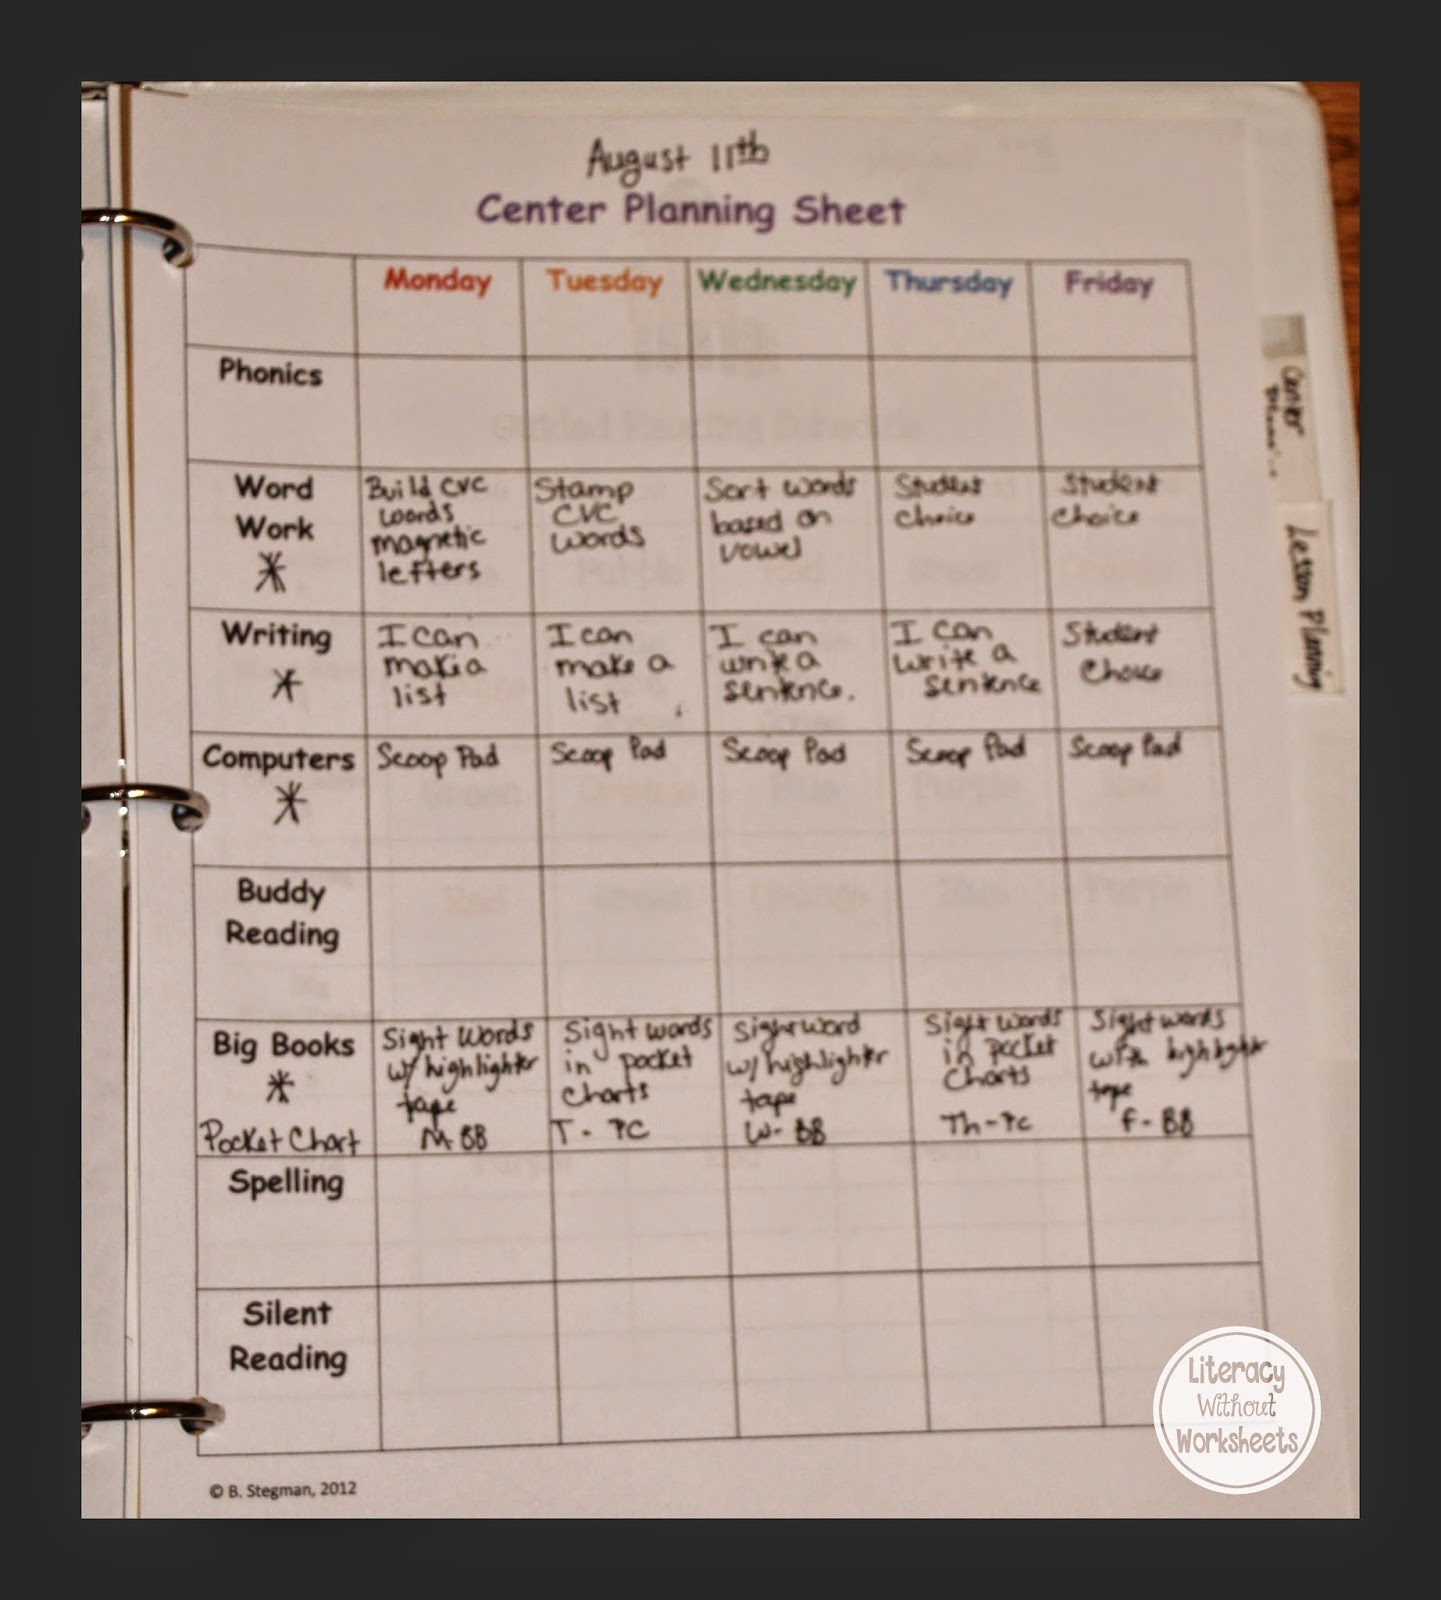 August 11th
Center Planning Sheet
Monday Tuesday Wednesday Thursday Friday
Phonics
Word
Work
Build CVC
words
magnetic
letters
Stamp
CVC
words
Sort words
based on
vowel
Student
Choice
Student
Choice
Writing
I can
make a
list
I can
make a
list
I can
write a
sentence.
I can
write a
sentence
Student
Choice
Computers
Scoop Pad
Scoop Pad
Scoop Pad
Scoop Pad
Scoop Pad
Buddy
Reading
Big Books
Pocket Chart
Sight Words
w/ highlighter
tape
M-BB
Sight words
in pocket
charts
T - PC
Sight word
w/ highlighter
tape
W- BB
Sight words
in pocket
Charts
Th-PC
Sight words
with highlighter
tape
F - BB
Spelling
Silent
Reading
© B. Stegman, 2012
Center
Lesson Planning
Literacy
Without
Worksheets